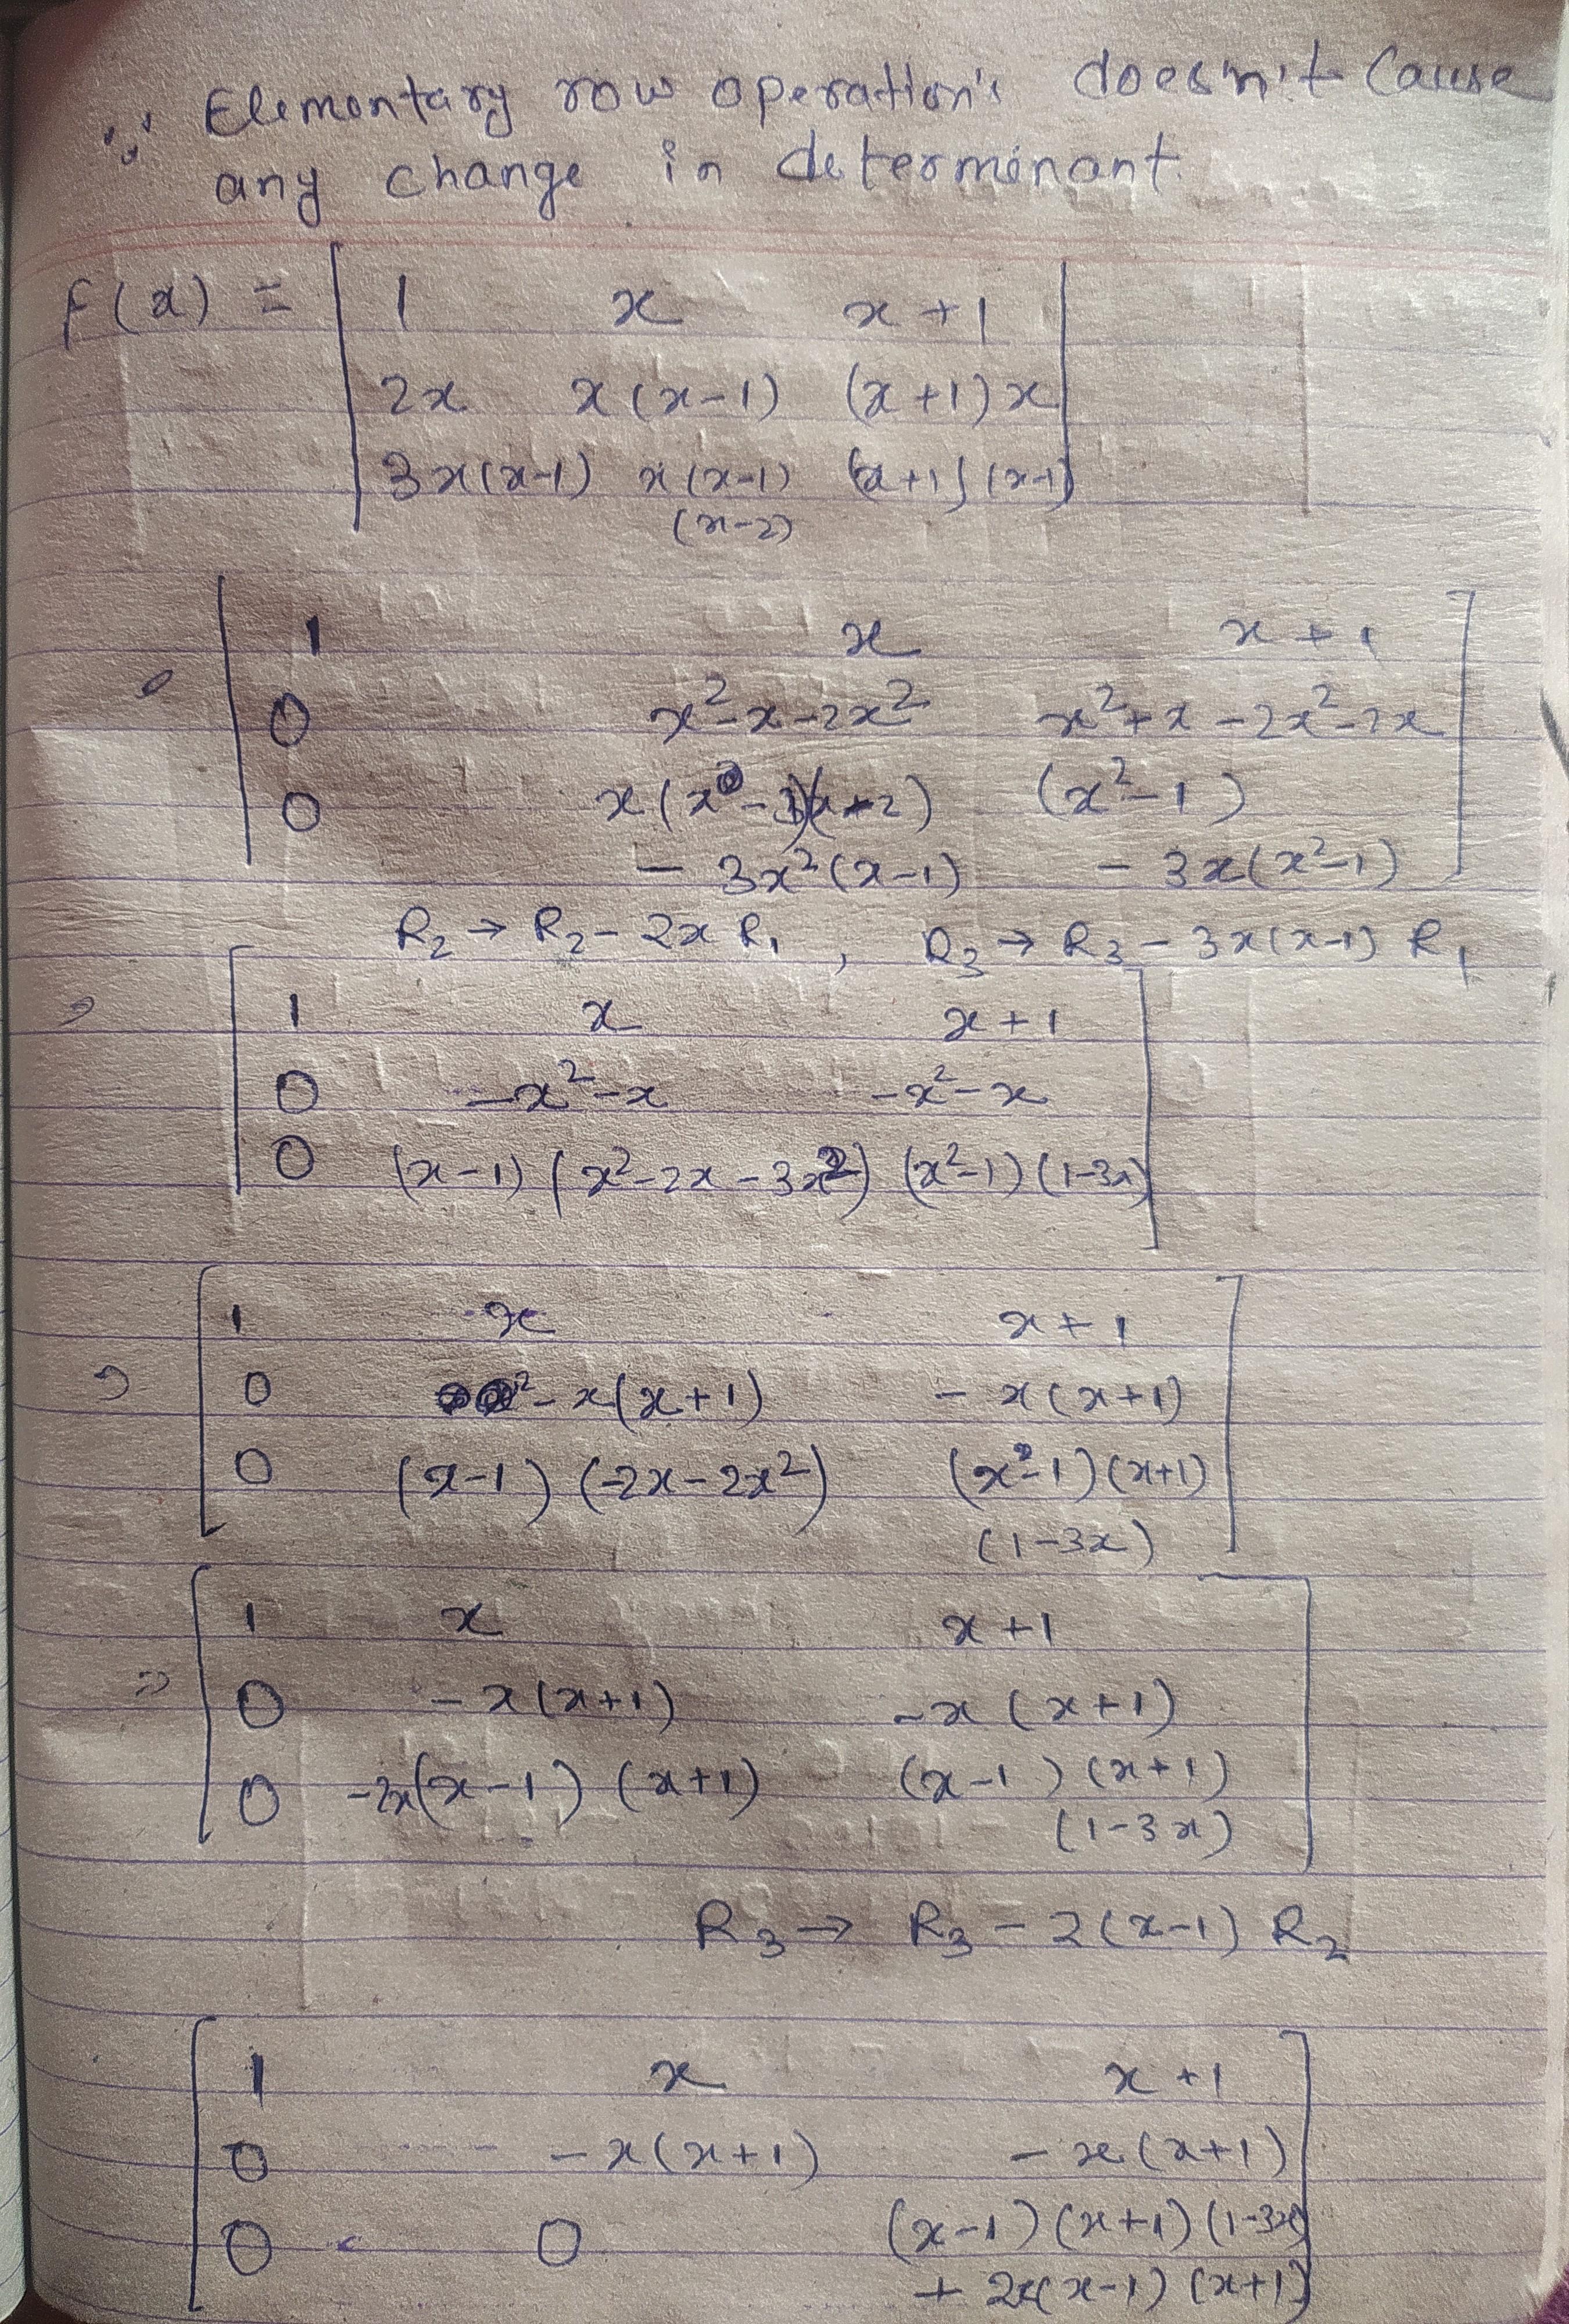 ∵ Elementary row operation's doesn't Cause
any change in determinant.
f(x) = | 1 x x+1 |
| 2x x(x-1) (x+1)x |
| 3x(x-1) x(x-1) (x+1)(x-1) |
(x-2)
1 x x+1
0 x²-x-2x² x²+x-2x²-2x
0 x(x-1)(x-2) (x²-1)
- 3x²(x-1) - 3x(x²-1)
R₂ → R₂ - 2x R₁ , R₃ → R₃ - 3x(x-1) R₁
⇒ 1 x x+1
0 -x²-x -x²-x
0 (x-1) (x²-2x-3x²) (x²-1)(1-3x)
⇒ 1 x x+1
0 -x(x+1) - x(x+1)
0 (x-1) (-2x-2x²) (x²-1)(x+1)
(1-3x)
⇒ 1 x x+1
0 -x(x+1) -x(x+1)
0 -2x(x-1) (x+1) (x-1)(x+1)
(1-3x)
R₃ → R₃ - 2(x-1) R₂
1 x x+1
0 -x(x+1) - x(x+1)
0 0 (x-1)(x+1)(1-3x)
+ 2x(x-1)(x+1)